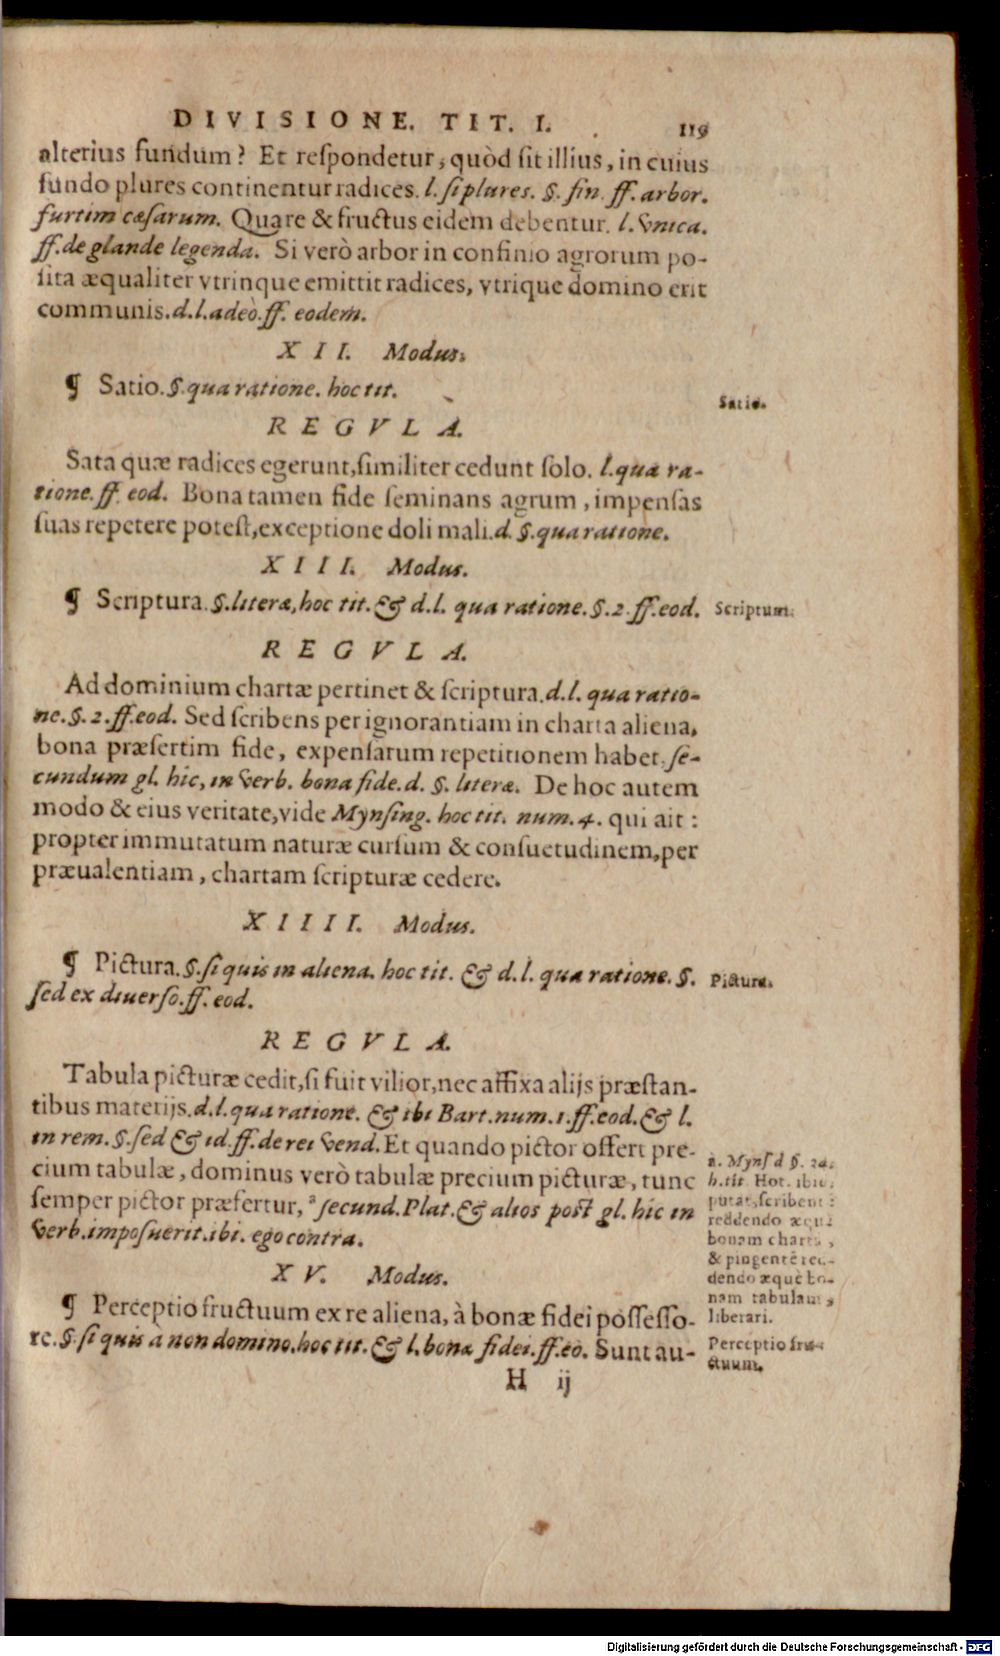 DIVISIONE. TIT. I. 119
alterius fundum? Et respondetur, quòd sit illius, in cuius
fundo plures continentur radices. l. si plures. §. fin. ff. arbor.
furtim cæsarum. Quare & fructus eidem debentur. l. vnica.
ff. de glande legenda. Si verò arbor in confinio agrorum po-
sita æqualiter vtrinque emittit radices, vtrique domino erit
communis. d. l. adeò. ff. eodem.
XII. Modus.
¶ Satio. §. qua ratione. hoc tit.
Satio.
REGVLA.
Sata quæ radices egerunt, similiter cedunt solo. l. qua ra-
tione. ff. eod. Bona tamen fide seminans agrum, impensas
suas repetere potest, exceptione doli mali. d. §. qua ratione.
XIII. Modus.
¶ Scriptura. §. literæ, hoc tit. & d. l. qua ratione. §. 2. ff. eod.
Scriptura.
REGVLA.
Ad dominium chartæ pertinet & scriptura. d. l. qua ratio-
ne. §. 2. ff. eod. Sed scribens per ignorantiam in charta aliena,
bona præsertim fide, expensarum repetitionem habet. se-
cundum gl. hic, in verb. bona fide. d. §. literæ. De hoc autem
modo & eius veritate, vide Mynsing. hoc tit. num. 4. qui ait:
propter immutatum naturæ cursum & consuetudinem, per
præualentiam, chartam scripturæ cedere.
XIIII. Modus.
¶ Pictura. §. si quis in aliena. hoc tit. & d. l. qua ratione. §.
Pictura.
sed ex diuerso. ff. eod.
REGVLA.
Tabula picturæ cedit, si fuit vilior, nec affixa alijs præstan-
tibus materijs. d. l. qua ratione. & ibi Bart. num. 1. ff. eod. & l.
in rem. §. sed & id. ff. de rei vend. Et quando pictor offert pre-
cium tabulæ, dominus verò tabulæ precium picturæ, tunc
semper pictor præfertur, ª secund. Plat. & alios post gl. hic in
verb. imposuerit. ibi. ego contra.
a. Myns. d §. 24.
h. tit. Hot. ibi
putat, scribent
reddendo æquè
bonam charta,
& pingentē red-
dendo æquè bo-
nam tabulam,
liberari.
XV. Modus.
¶ Perceptio fructuum ex re aliena, à bonæ fidei possesso-
re. §. si quis à non domino. hoc tit. & l. bonæ fidei. ff. eo. Sunt au-
Perceptio fru-
ctuum.
H ij
Digitalisierung gefördert durch die Deutsche Forschungsgemeinschaft - DFG